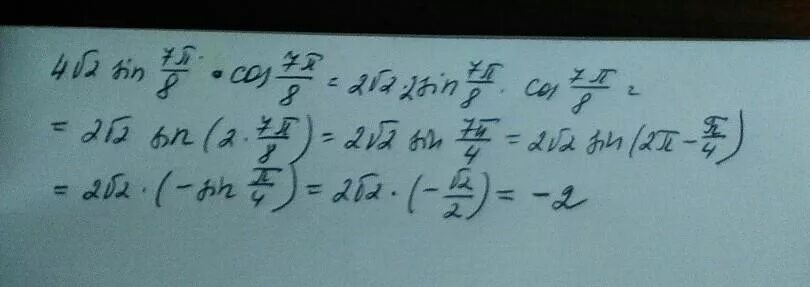 4√2 sin 7π/8 · cos 7π/8 = 2√2·2sin 7π/8 · cos 7π/8 =
= 2√2 sin(2·7π/8) = 2√2 sin 7π/4 = 2√2 sin(2π - π/4)
= 2√2·(-sin π/4) = 2√2·(-√2/2) = -2